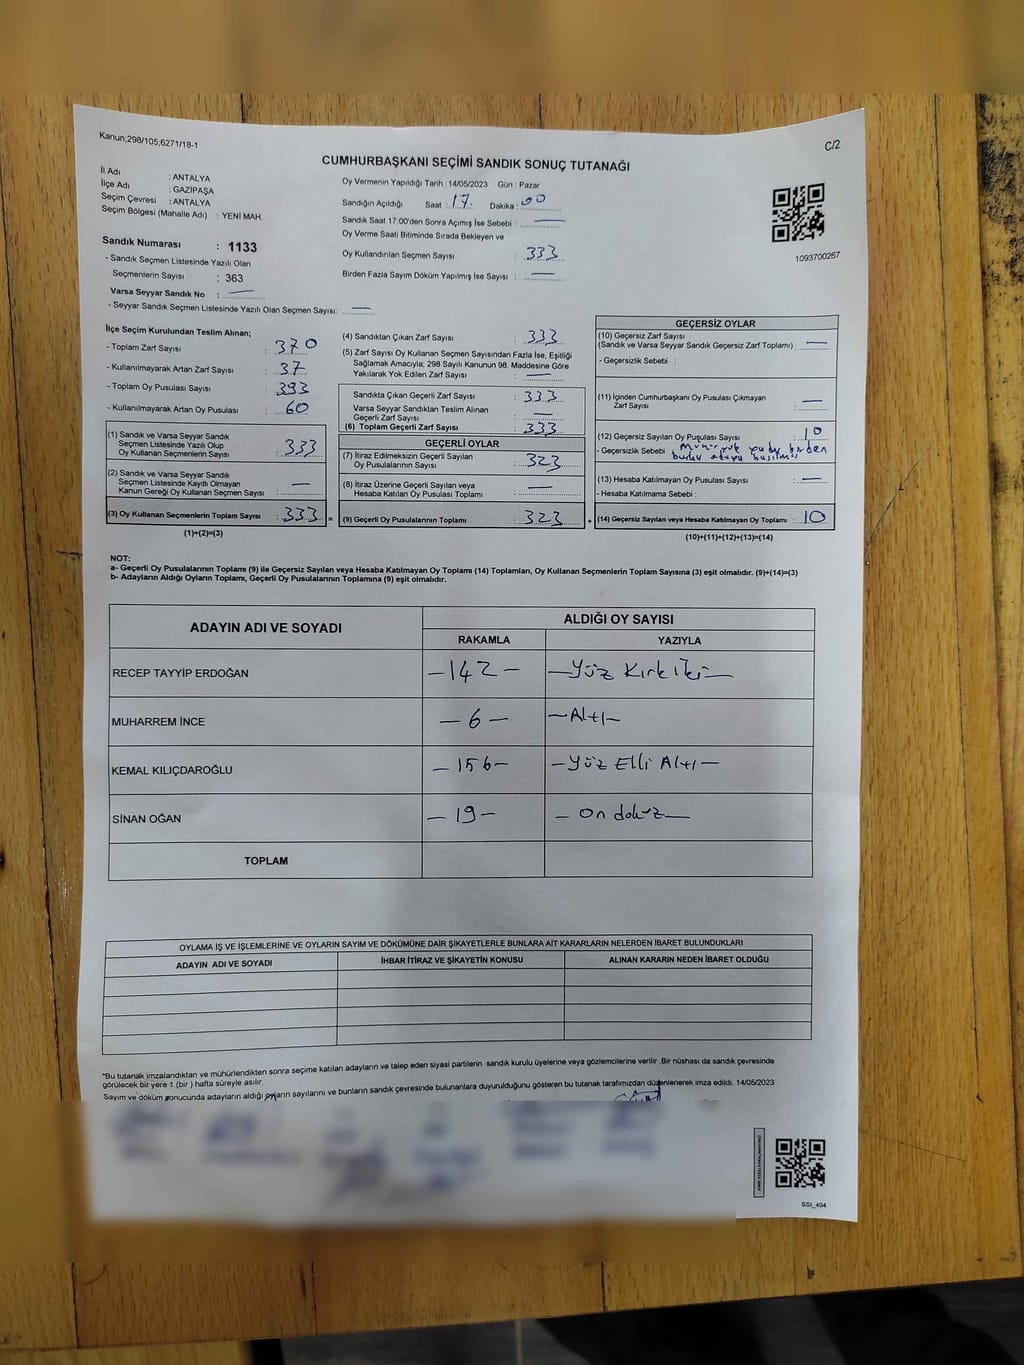 Kanun;298/105;6271/18-1
C/2
CUMHURBAŞKANI SEÇİMİ SANDIK SONUÇ TUTANAĞI
İl Adı : ANTALYA
İlçe Adı : GAZİPAŞA
Seçim Çevresi : ANTALYA
Seçim Bölgesi (Mahalle Adı) : YENİ MAH.
Sandık Numarası : 1133
- Sandık Seçmen Listesinde Yazılı Olan
Seçmenlerin Sayısı : 363
Varsa Seyyar Sandık No : —
- Seyyar Sandık Seçmen Listesinde Yazılı Olan Seçmen Sayısı: —
Oy Vermenin Yapıldığı Tarih : 14/05/2023 Gün : Pazar
Sandığın Açıldığı Saat : 17. Dakika : 00
Sandık Saat 17:00'den Sonra Açımış İse Sebebi : —
Oy Verme Saati Bitiminde Sırada Bekleyen ve
Oy Kullandırılan Seçmen Sayısı : 333
Birden Fazla Sayım Döküm Yapılmış İse Sayısı : —
1093700267
İlçe Seçim Kurulundan Teslim Alınan;
- Toplam Zarf Sayısı : 370
- Kullanılmayarak Artan Zarf Sayısı : 37
- Toplam Oy Pusulası Sayısı : 393
- Kullanılmayarak Artan Oy Pusulası : 60
(1) Sandık ve Varsa Seyyar Sandık
Seçmen Listesinde Yazılı Olup
Oy Kullanan Seçmenlerin Sayısı : 333
(2) Sandık ve Varsa Seyyar Sandık
Seçmen Listesinde Kayıtlı Olmayan
Kanun Gereği Oy Kullanan Seçmen Sayısı : —
(3) Oy Kullanan Seçmenlerin Toplam Sayısı : 333 =
(1)+(2)=(3)
(4) Sandıktan Çıkan Zarf Sayısı : 333
(5) Zarf Sayısı Oy Kullanan Seçmen Sayısından Fazla İse, Eşitliği
Sağlamak Amacıyla; 298 Sayılı Kanunun 98. Maddesine Göre
Yakılarak Yok Edilen Zarf Sayısı : —
Sandıkta Çıkan Geçerli Zarf Sayısı : 333
Varsa Seyyar Sandıktan Teslim Alınan
Geçerli Zarf Sayısı : —
(6) Toplam Geçerli Zarf Sayısı : 333
GEÇERLİ OYLAR
(7) İtiraz Edilmeksizin Geçerli Sayılan
Oy Pusulalarının Sayısı : 323
(8) İtiraz Üzerine Geçerli Sayılan veya
Hesaba Katılan Oy Pusulası Toplamı : —
(9) Geçerli Oy Pusulalarının Toplamı : 323 +
GEÇERSİZ OYLAR
(10) Geçersiz Zarf Sayısı
(Sandık ve Varsa Seyyar Sandık Geçersiz Zarf Toplamı) : —
- Geçersizlik Sebebi :
(11) İçinden Cumhurbaşkanı Oy Pusulası Çıkmayan
Zarf Sayısı : —
(12) Geçersiz Sayılan Oy Pusulası Sayısı : 10
- Geçersizlik Sebebi : birden
(13) Hesaba Katılmayan Oy Pusulası Sayısı : —
- Hesaba Katılmama Sebebi :
(14) Geçersiz Sayılan veya Hesaba Katılmayan Oy Toplamı : 10
(10)+(11)+(12)+(13)=(14)
NOT:
a- Geçerli Oy Pusulalarının Toplamı (9) ile Geçersiz Sayılan veya Hesaba Katılmayan Oy Toplamı (14) Toplamları, Oy Kullanan Seçmenlerin Toplam Sayısına (3) eşit olmalıdır. (9)+(14)=(3)
b- Adayların Aldığı Oyların Toplamı, Geçerli Oy Pusulalarının Toplamına (9) eşit olmalıdır.
ADAYIN ADI VE SOYADI ALDIĞI OY SAYISI
RAKAMLA YAZIYLA
RECEP TAYYİP ERDOĞAN —142— —Yüz Kırk İki—
MUHARREM İNCE —6— —Altı—
KEMAL KILIÇDAROĞLU —156— —Yüz Elli Altı—
SİNAN OĞAN —19— —On dokuz—
TOPLAM
OYLAMA İŞ VE İŞLEMLERİNE VE OYLARIN SAYIM VE DÖKÜMÜNE DAİR ŞİKAYETLERLE BUNLARA AİT KARARLARIN NELERDEN İBARET BULUNDUKLARI
ADAYIN ADI VE SOYADI İHBAR İTİRAZ VE ŞİKAYETİN KONUSU ALINAN KARARIN NEDEN İBARET OLDUĞU
*Bu tutanak imzalandıktan ve mühürlendikten sonra seçime katılan adayların ve talep eden siyasi partilerin sandık kurulu üyelerine veya gözlemcilerine verilir .Bir nüshası da sandık çevresinde
görülecek bir yere 1 (bir ) hafta süreyle asılır.
Sayım ve döküm sonucunda adayların aldığı oyların sayılarını ve bunların sandık çevresinde bulunanlara duyurulduğunu gösteren bu tutanak tarafımızdan düzenlenerek imza edildi. 14/05/2023
SSI_404